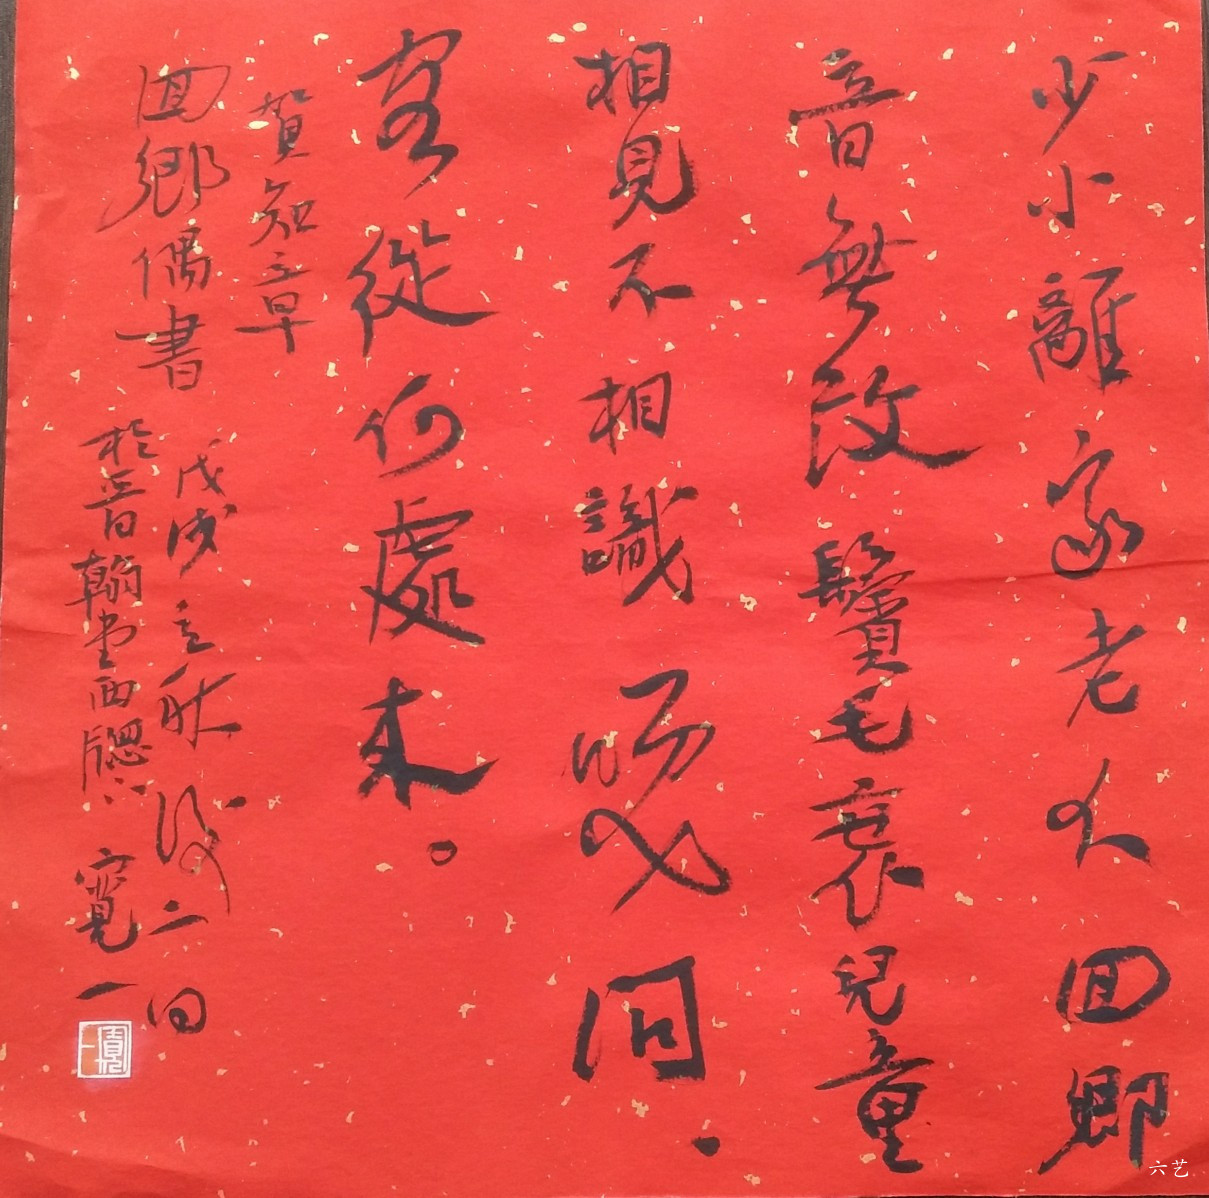 少小離家老大囬鄉
音無改鬢毛衰兒童
相見不相識笑問.
客從何處來。
賀知章
囬鄉偶書
戊戌立秋後二日
於晉翰堂西牕 寬一
六艺